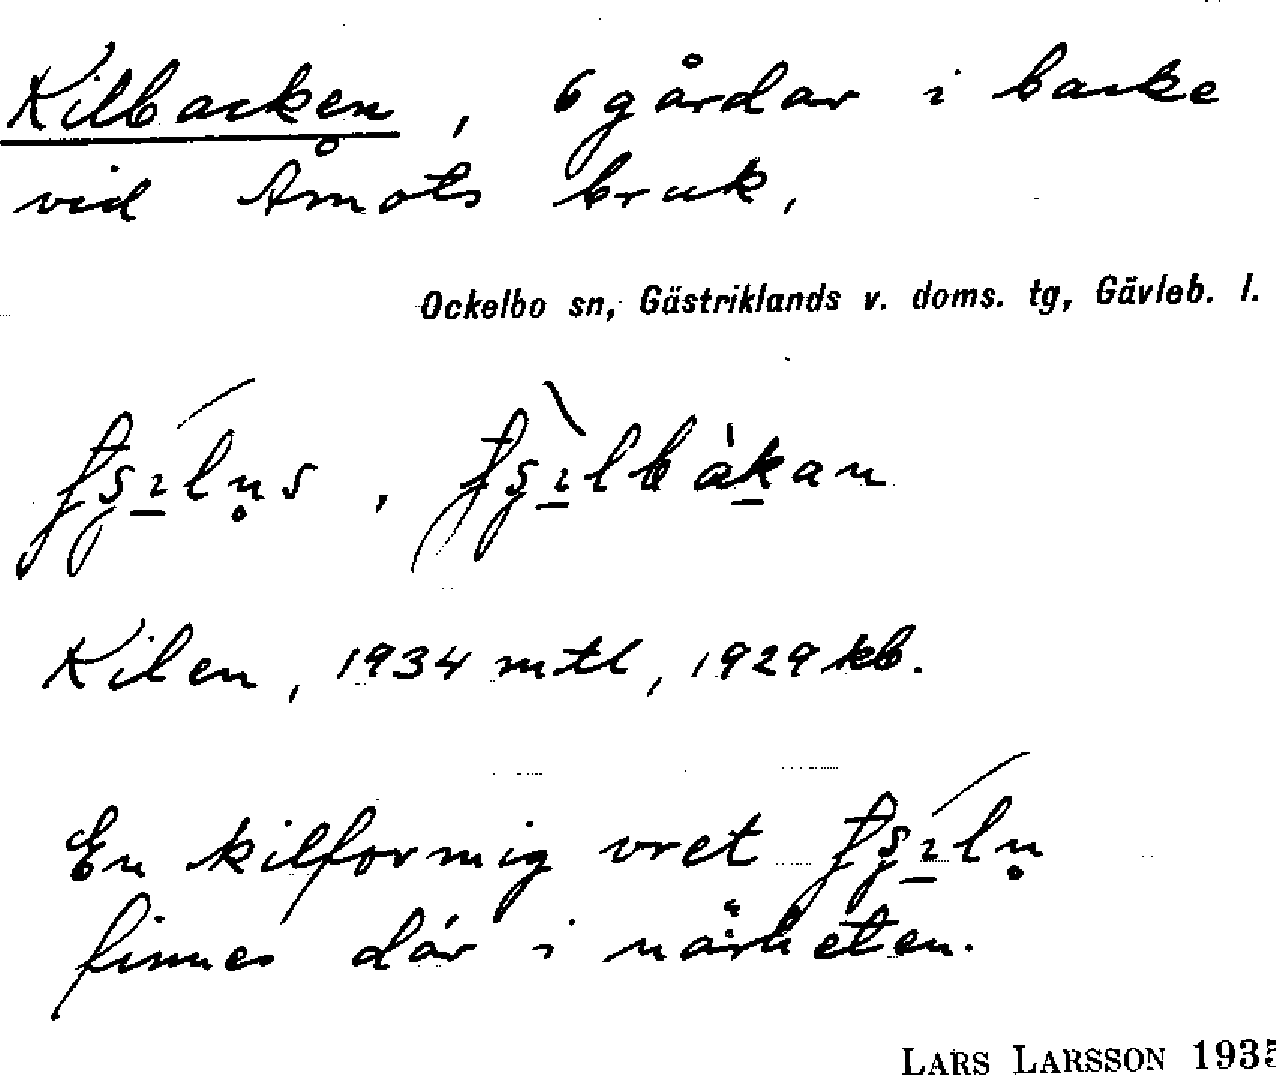 Kilbacken, 6 gårdar i backe
vid Åmots bruk,
Ockelbo sn, Gästriklands v. doms. tg, Gävleb. l.
Kilen, 1934 mtl, 1929 kb.
En kilformig vret
finnes där i närheten.
LARS LARSSON 1935